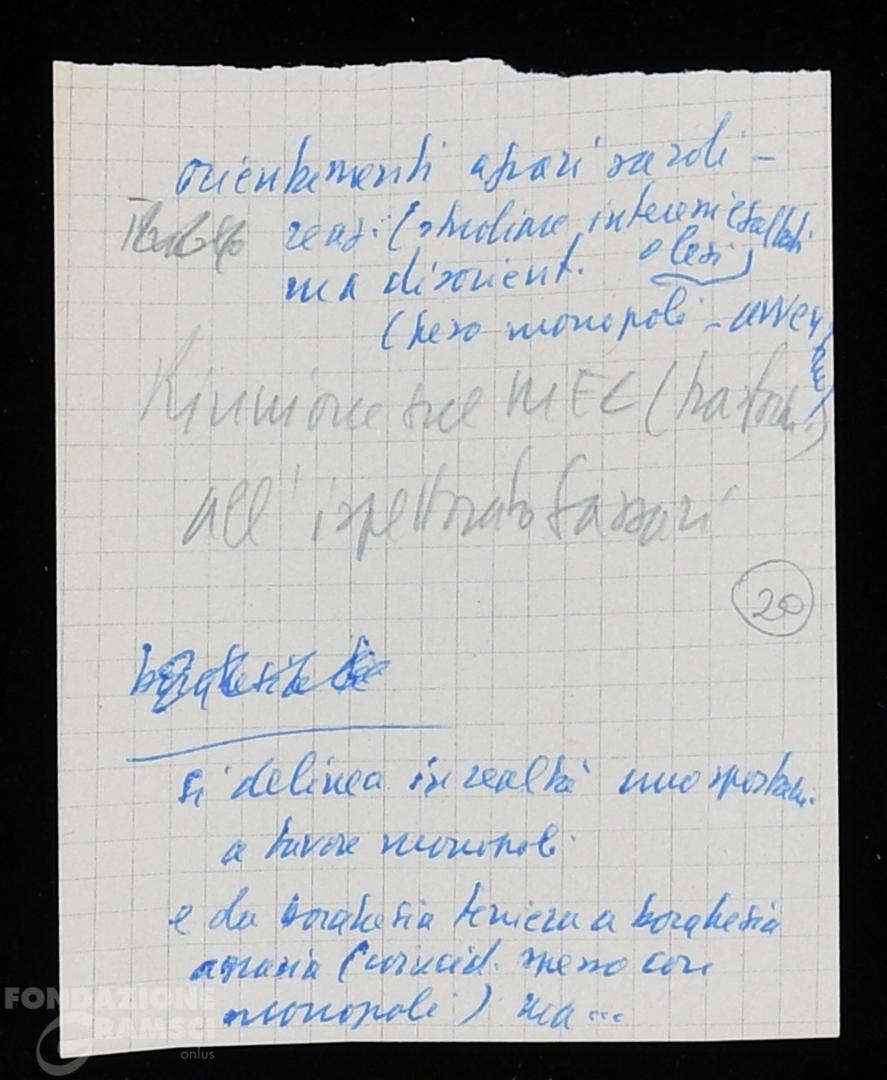 orientamenti agrari sardi -
reaz. (studiare interessi
ma disorient. olesi
(peso monopoli -
Riunione sul MEC (trasform.)
all'ispettorato Sassari
20
borghesia
si delinea in realtà uno spostam.
a favore monopoli.
e da borghesia terriera a borghesia
agraria (coincid. spesso con
monopoli) ma...
FONDAZIONE
GRAMSCI
onlus